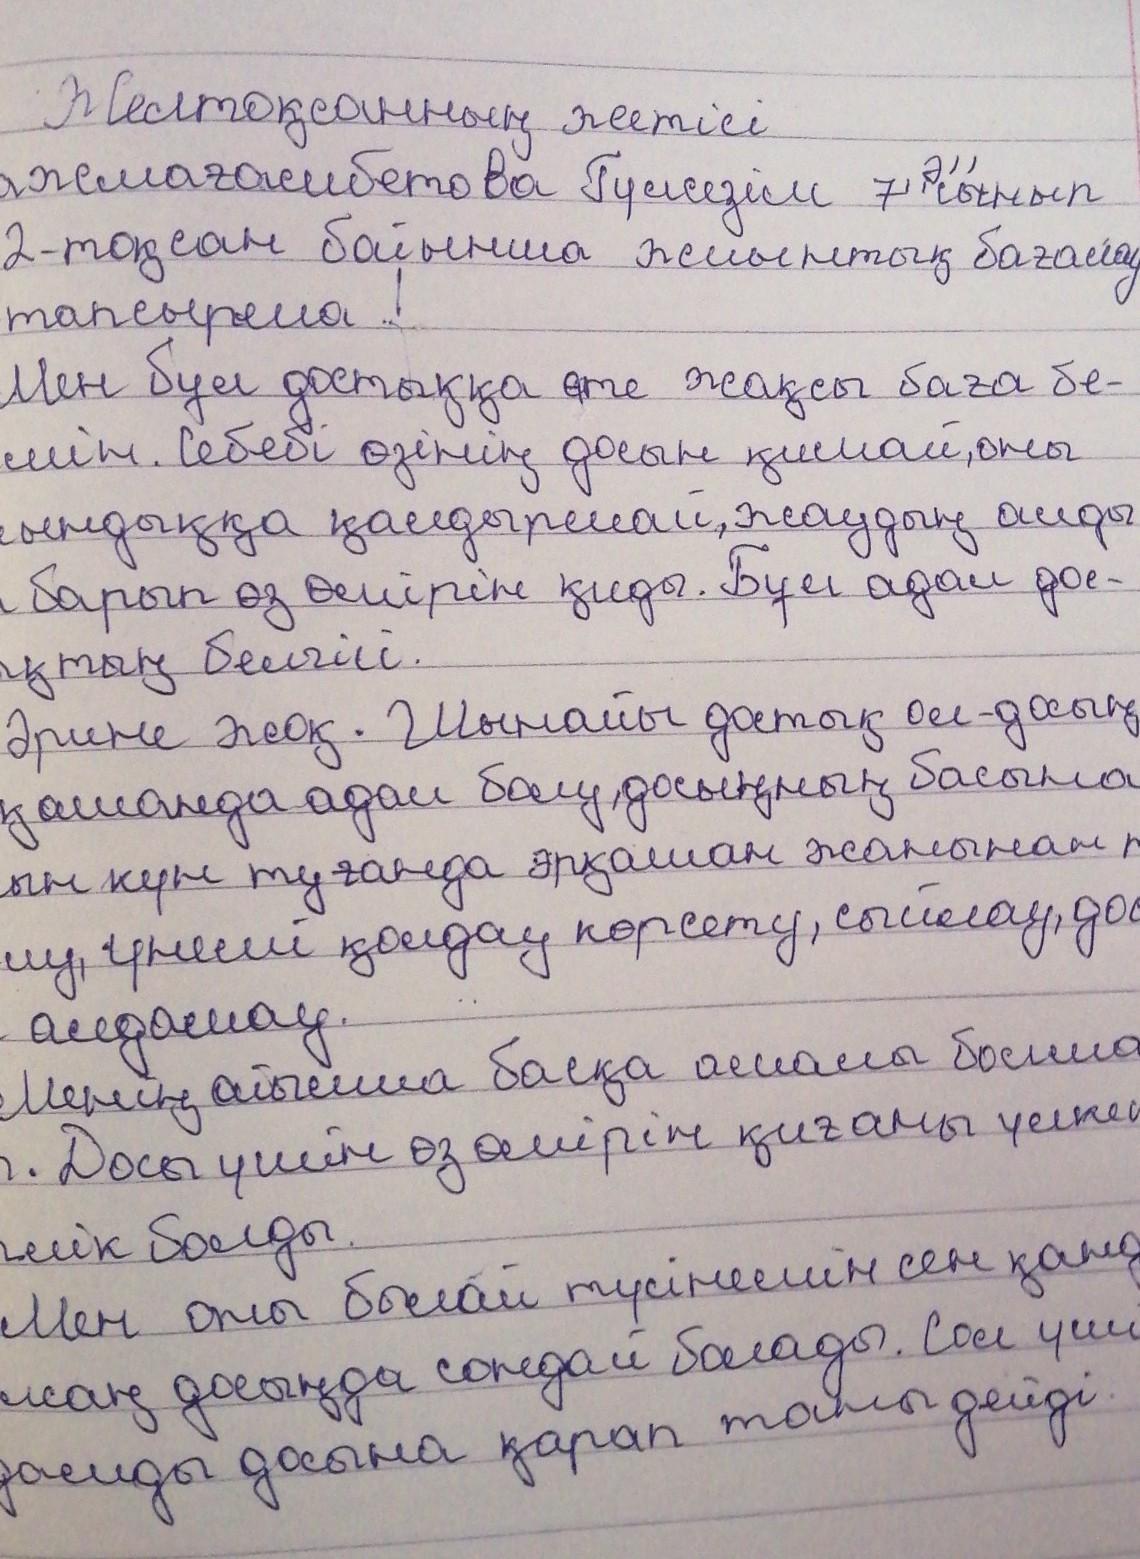 Желтоқсанның жетісі
ажмағамбетова Гүлсезім 7 "Ә" сынып
2-тоқсан бойынша жиынтық бағалау
тапсырма !
Мен бұл достыққа өте жақсы баға бе-
мін. Себебі өзінің досын қимай, оны
ындыққа қалдырмай, жаудың алды
а барып өз өмірін қиды. Бұл адал дос-
ықтың белгісі.
Әрине жоқ. Шынайы достық ол-досың
қашанда адал болу, досыңның басына
ын күн туғанда әрқашан жанынан т
лу, үнемі қолдау көрсету, сыйлау, дос
алдамау.
Менің ойымша басқа амалы болма
п. Досы үшін өз өмірін қиғаны үлкен
лік болды.
Мен оны былай түсінемін сен қанд
лсаң досыңда сондай болады. Сол үші
дамды досына қарап таны дейді.